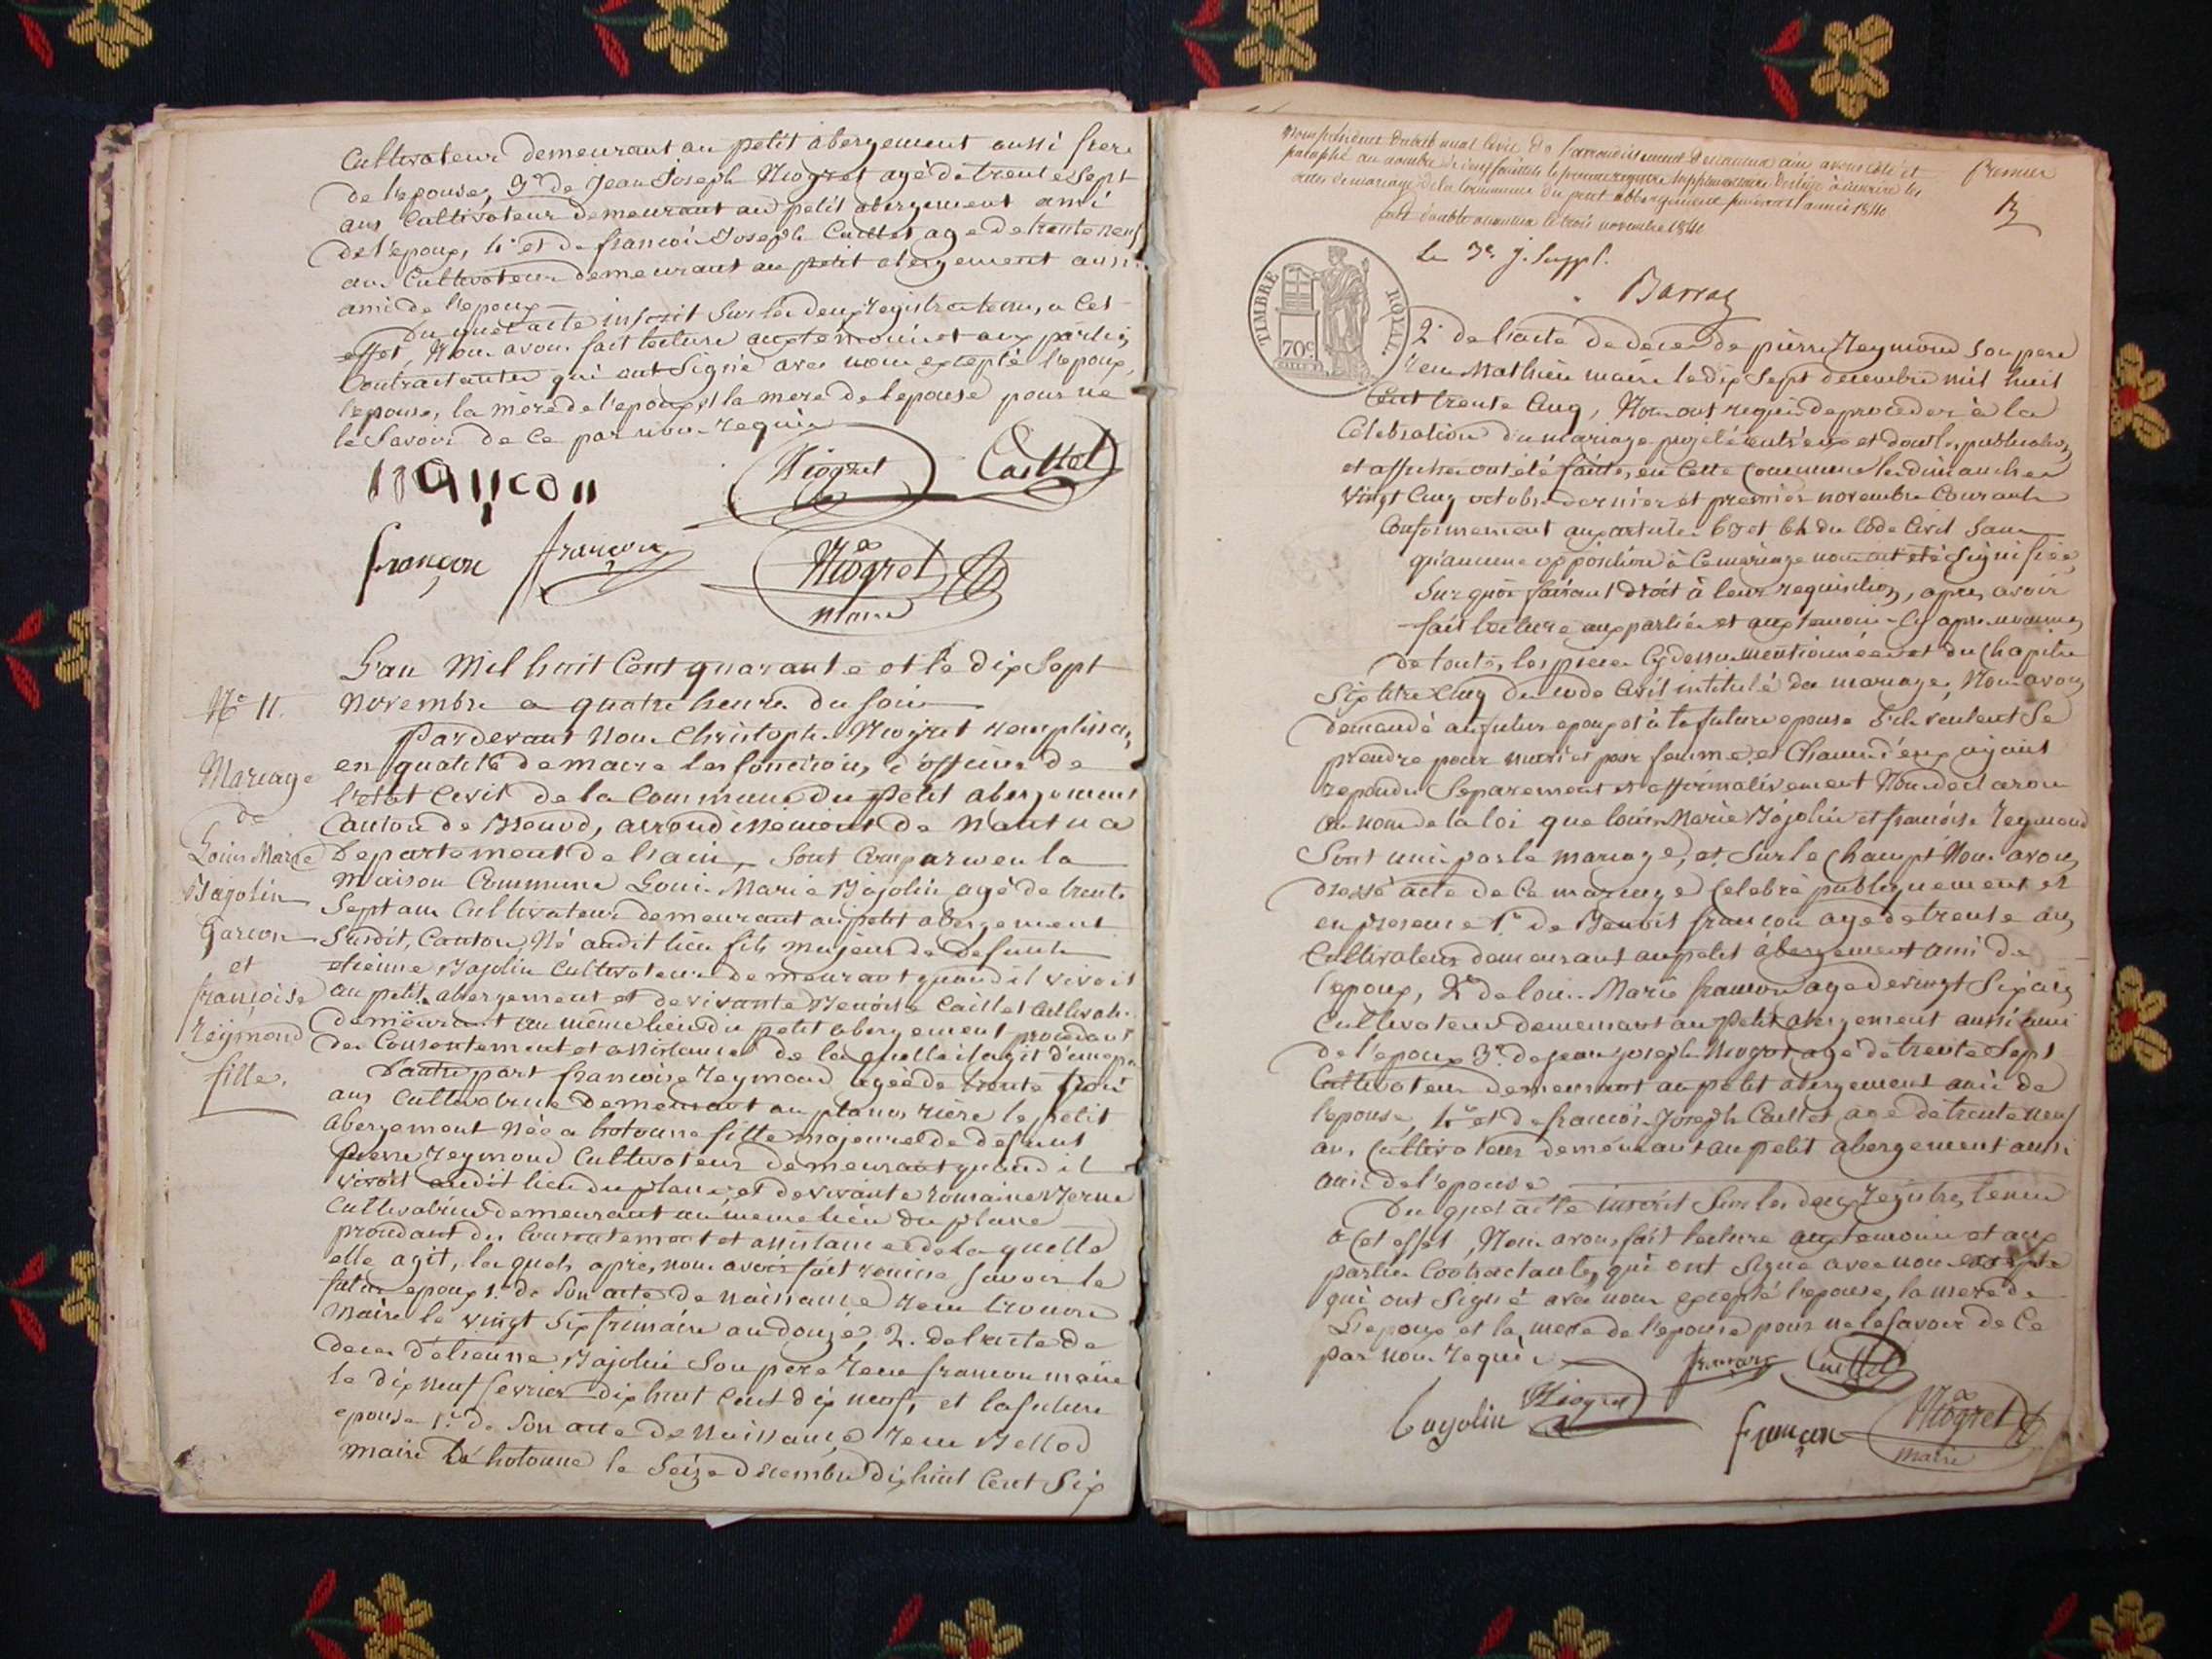 Cultivateur demeurant au petit abergement aussi frere
de l'epouse, 3º de Jean Joseph Niogret agé de trente Sept
ans Cultivateur demeurant au petit abergement ami
de l'epoux, 4º et de francois Joseph Caillet age de trente neuf
ans Cultivateur demeurant au petit abergement aussi
ami de l'epoux
Du quel acte inscrit Sur les deux registres tenus a Cet
effet, Nous avons fait lecture aux temoins et aux parties
Contractantes qui ont Signé avec nous excepté l'epoux,
l'epouse, la mere de l'epoux et la mere de l'epouse pour ne
le Savoir de Ce par nous requis
françon Niogret Caillet
françon françon Niogret
maire
L'an Mil huit Cent quarante et le dix Sept
Nº 11. Novembre a quatre heures du Soir
Pardevant Nous Christophe Niogret remplissant
Mariage en qualité de maire les fonctions d'officier de
de l'etat Civil de la Commune du Petit abergement
Canton de Brenod, arrondissement de Nantua
Louis Marie Departement de l'ain, Sont Comparus en la
Maison Commune Louis Marie Bajolin agé de trente
Bajolin Sept ans Cultivateur demeurant au petit abergement
Garcon Susdit, Canton, Né audit lieu fils majeur de defunt
et etienne Bajolin Cultivateur demeurant quand il vivoit
françoise au petit abergement et de vivante Benoite Caillet Cultivatr.
Reymond demeurant au même lieu du petit abergement procedant
du Consentement et assistance de la quelle il agit d'une part
fille. D'autre part francoise Reymond agée de trente trois
ans Cultivatrice demeurant au planes rière le petit
abergement Née a hotonne fille majeure de defunt
Pierre Reymond Cultivateur demeurant quand il
vivoit audit lieu du plane, et de vivante romaine Berne
Cultivatrice demeurant au meme lieu du plane
procedant du Consentement et assistance de la quelle
elle agit, les quels, apres nous avoir fait remise, Savoir le
futur epoux 1º de Son acte de naissance reçu
Maire le vingt Six frimaire an douze, 2º de l'acte de
deces d'etienne Bajolin Son pere reçu francon maire
le dix neuf fevrier dix huit Cent dix neuf, et la future
epouse 1º de Son acte de Naissance reçu Bellod
maire de hotonne le Seize decembre dix huit Cent Six
Nous president du tribunal Civil de l'arrondissement de nantua ain avons coté et
paraphé au nombre de deux feuillets le present registre Supplementaire destiné à inscrire les
actes de mariage de la Commune du petit abbergement pendant l'année 1840
fait double a nantua le trois novembre 1840
premier
B
Le 3e J. Suppl.
Barras
TIMBRE ROYAL
70c
2º de l'acte de deces de pierre Reymond Son pere
reçu Mathieu maire le dix Sept decembre mil huit
Cent trente Cinq, Nous ont requis de proceder à la
Celebration du mariage projeté entr'eux et dont les publications
et affiches ont été faites, en Cette Commune les dimanches
Vingt Cinq octobre dernier et premier novembre Courant
Conformement aux articles 63 et 64 du Code Civil Sans
qu'aucune opposition à Ce mariage nous ait été Signifiée,
Sur quoi faisant droit à leur requisition, apres avoir
fait lecture aux parties et aux temoins Cy apres nommés
de toutes les pieces Cy dessus mentionnées et du Chapitre
Six titre Cinq du code Civil intitulé du mariage, Nous avons
demandé au futur epoux et à la future epouse S'ils veulent Se
prendre pour mari et pour femme, et Chacun d'eux ayant
repondu Separement et affirmativement Nous declarons
au nom de la loi que louis Marie Bajolin et francoise Reymond
Sont unis par le mariage, et Sur le Champt Nous avons
dressé acte de Ce mariage Celebré publiquement et
en presence 1º de Benoit francon agé de trente ans
Cultivateur demeurant au petit abergement ami de
l'epoux, 2º de louis Marie francon age de vingt Six ans
Cultivateur demeurant au Petit abergement aussi ami
de l'epoux 3º de jean joseph Niogret agé de trente Sept
Cultivateur demeurant au petit abergement ami de
l'epouse, 4º et de francois Joseph Caillet age de trente neuf
ans Cultivateur demeurant au petit abergement aussi
ami de l'epouse
Du quel acte inscrit Sur les deux registres tenus
à Cet effet, Nous avons fait lecture aux temoins et aux
parties Contractantes, qui ont Signé avec nous excepté
qui ont Signé avec nous excepté l'epouse, la mere de
L'epoux et la mere de l'epouse pour ne le Savoir de Ce
par nous requis françon Caillet
bagolin Niogret françon Niogret
maire